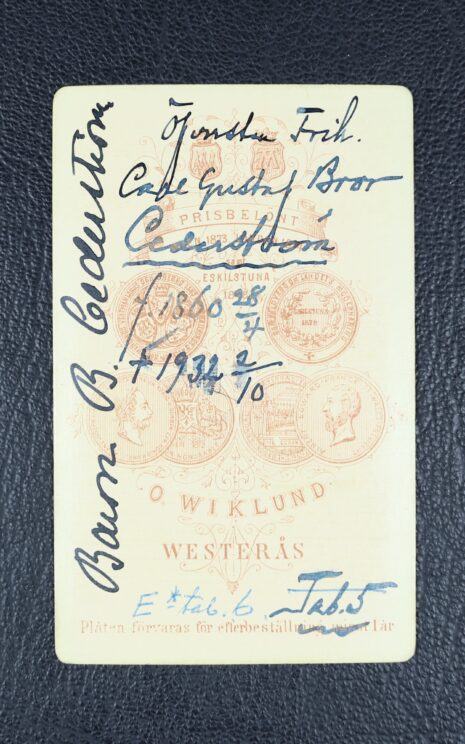 Öfversten Frih.
Carl Gustaf Bror
PRISBELÖNT
Cederström
ESKILSTUNA
f. 1860 28/4
† 1934 2/10
Baron B. Cederström
O. WIKLUND
WESTERÅS
E* tab. 6 Tab. 5
Plåten förvaras för efterbeställning minst 1 år